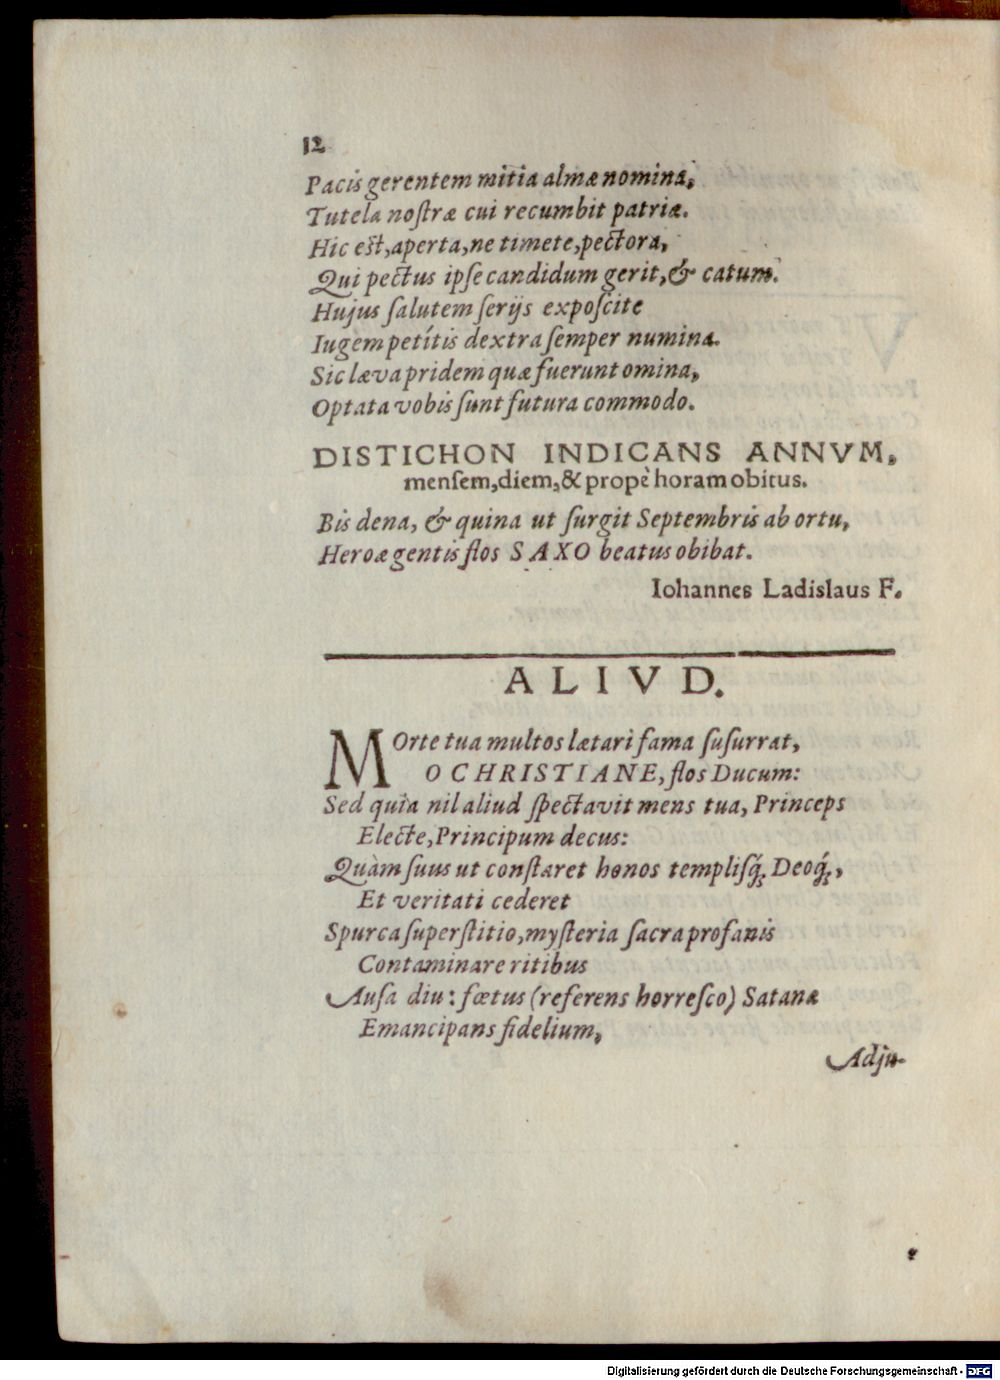 12
Pacis gerentem mitia almæ nomina,
Tutela noſtræ cui recumbit patriæ.
Hic eſt, aperta, ne timete, pectora,
Qui pectus ipſe candidum gerit, & catum.
Hujus ſalutem ſerijs expoſcite
Iugem petítis dextra ſemper numina.
Sic læva pridem quæ fuerunt omina,
Optata vobis ſunt futura commodo.
DISTICHON INDICANS ANNVM,
menſem, diem, & propè horam obitus.
Bis dena, & quina ut ſurgit Septembris ab ortu,
Heroæ gentis flos SAXO beatus obibat.
Iohannes Ladislaus F.
ALIVD.
MOrte tua multos lætari fama ſuſurrat,
O CHRISTIANE, flos Ducum:
Sed quia nil aliud ſpectavit mens tua, Princeps
Electe, Principum decus:
Quàm ſuus ut conſtaret honos templiſq́;, Deoq́;,
Et veritati cederet
Spurca ſuperſtitio, myſteria ſacra profanis
Contaminare ritibus
Auſa diu: fœtus (referens horreſco) Satanæ
Emancipans fidelium,
Adju-
Digitalisierung gefördert durch die Deutsche Forschungsgemeinschaft - DFG